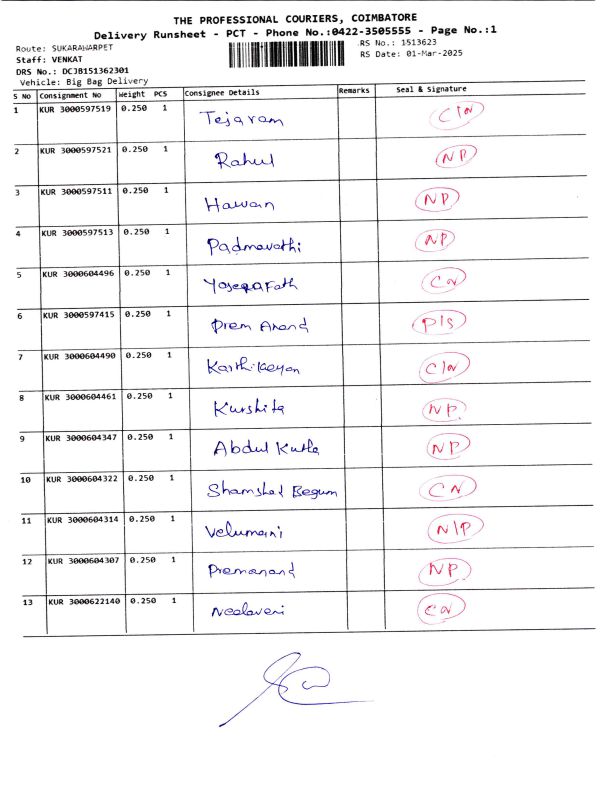 THE PROFESSIONAL COURIERS, COIMBATORE
Delivery Runsheet - PCT - Phone No.:0422-3505555 - Page No.:1
Route: SUKARAWARPET RS No.: 1513623
Staff: VENKAT RS Date: 01-Mar-2025
DRS No.: DCJB151362301
Vehicle: Big Bag Delivery
S No Consignment No Weight PCS Consignee Details Remarks Seal & Signature
1 KUR 3000597519 0.250 1 Tejaram C/N
2 KUR 3000597521 0.250 1 Rahul NP
3 KUR 3000597511 0.250 1 NP
4 KUR 3000597513 0.250 1 Padmavathi NP
5 KUR 3000604496 0.250 1 CN
6 KUR 3000597415 0.250 1 Prem Anand P/S
7 KUR 3000604490 0.250 1 Karthikeyan C/N
8 KUR 3000604461 0.250 1 Kurshita NP.
9 KUR 3000604347 0.250 1 Abdul NP
10 KUR 3000604322 0.250 1 Shamshad Begum CN
11 KUR 3000604314 0.250 1 Velumani N/P
12 KUR 3000604307 0.250 1 Premanand NP.
13 KUR 3000622140 0.250 1 Neelaveni CN